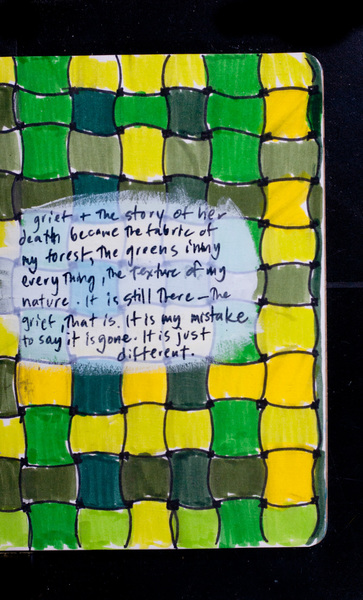 grief + the story of her
death became the fabric of
my forest, the greens in my
everything, the texture of my
nature. It is still there - the
grief, that is. It is my mistake
to say it is gone. It is just
different.